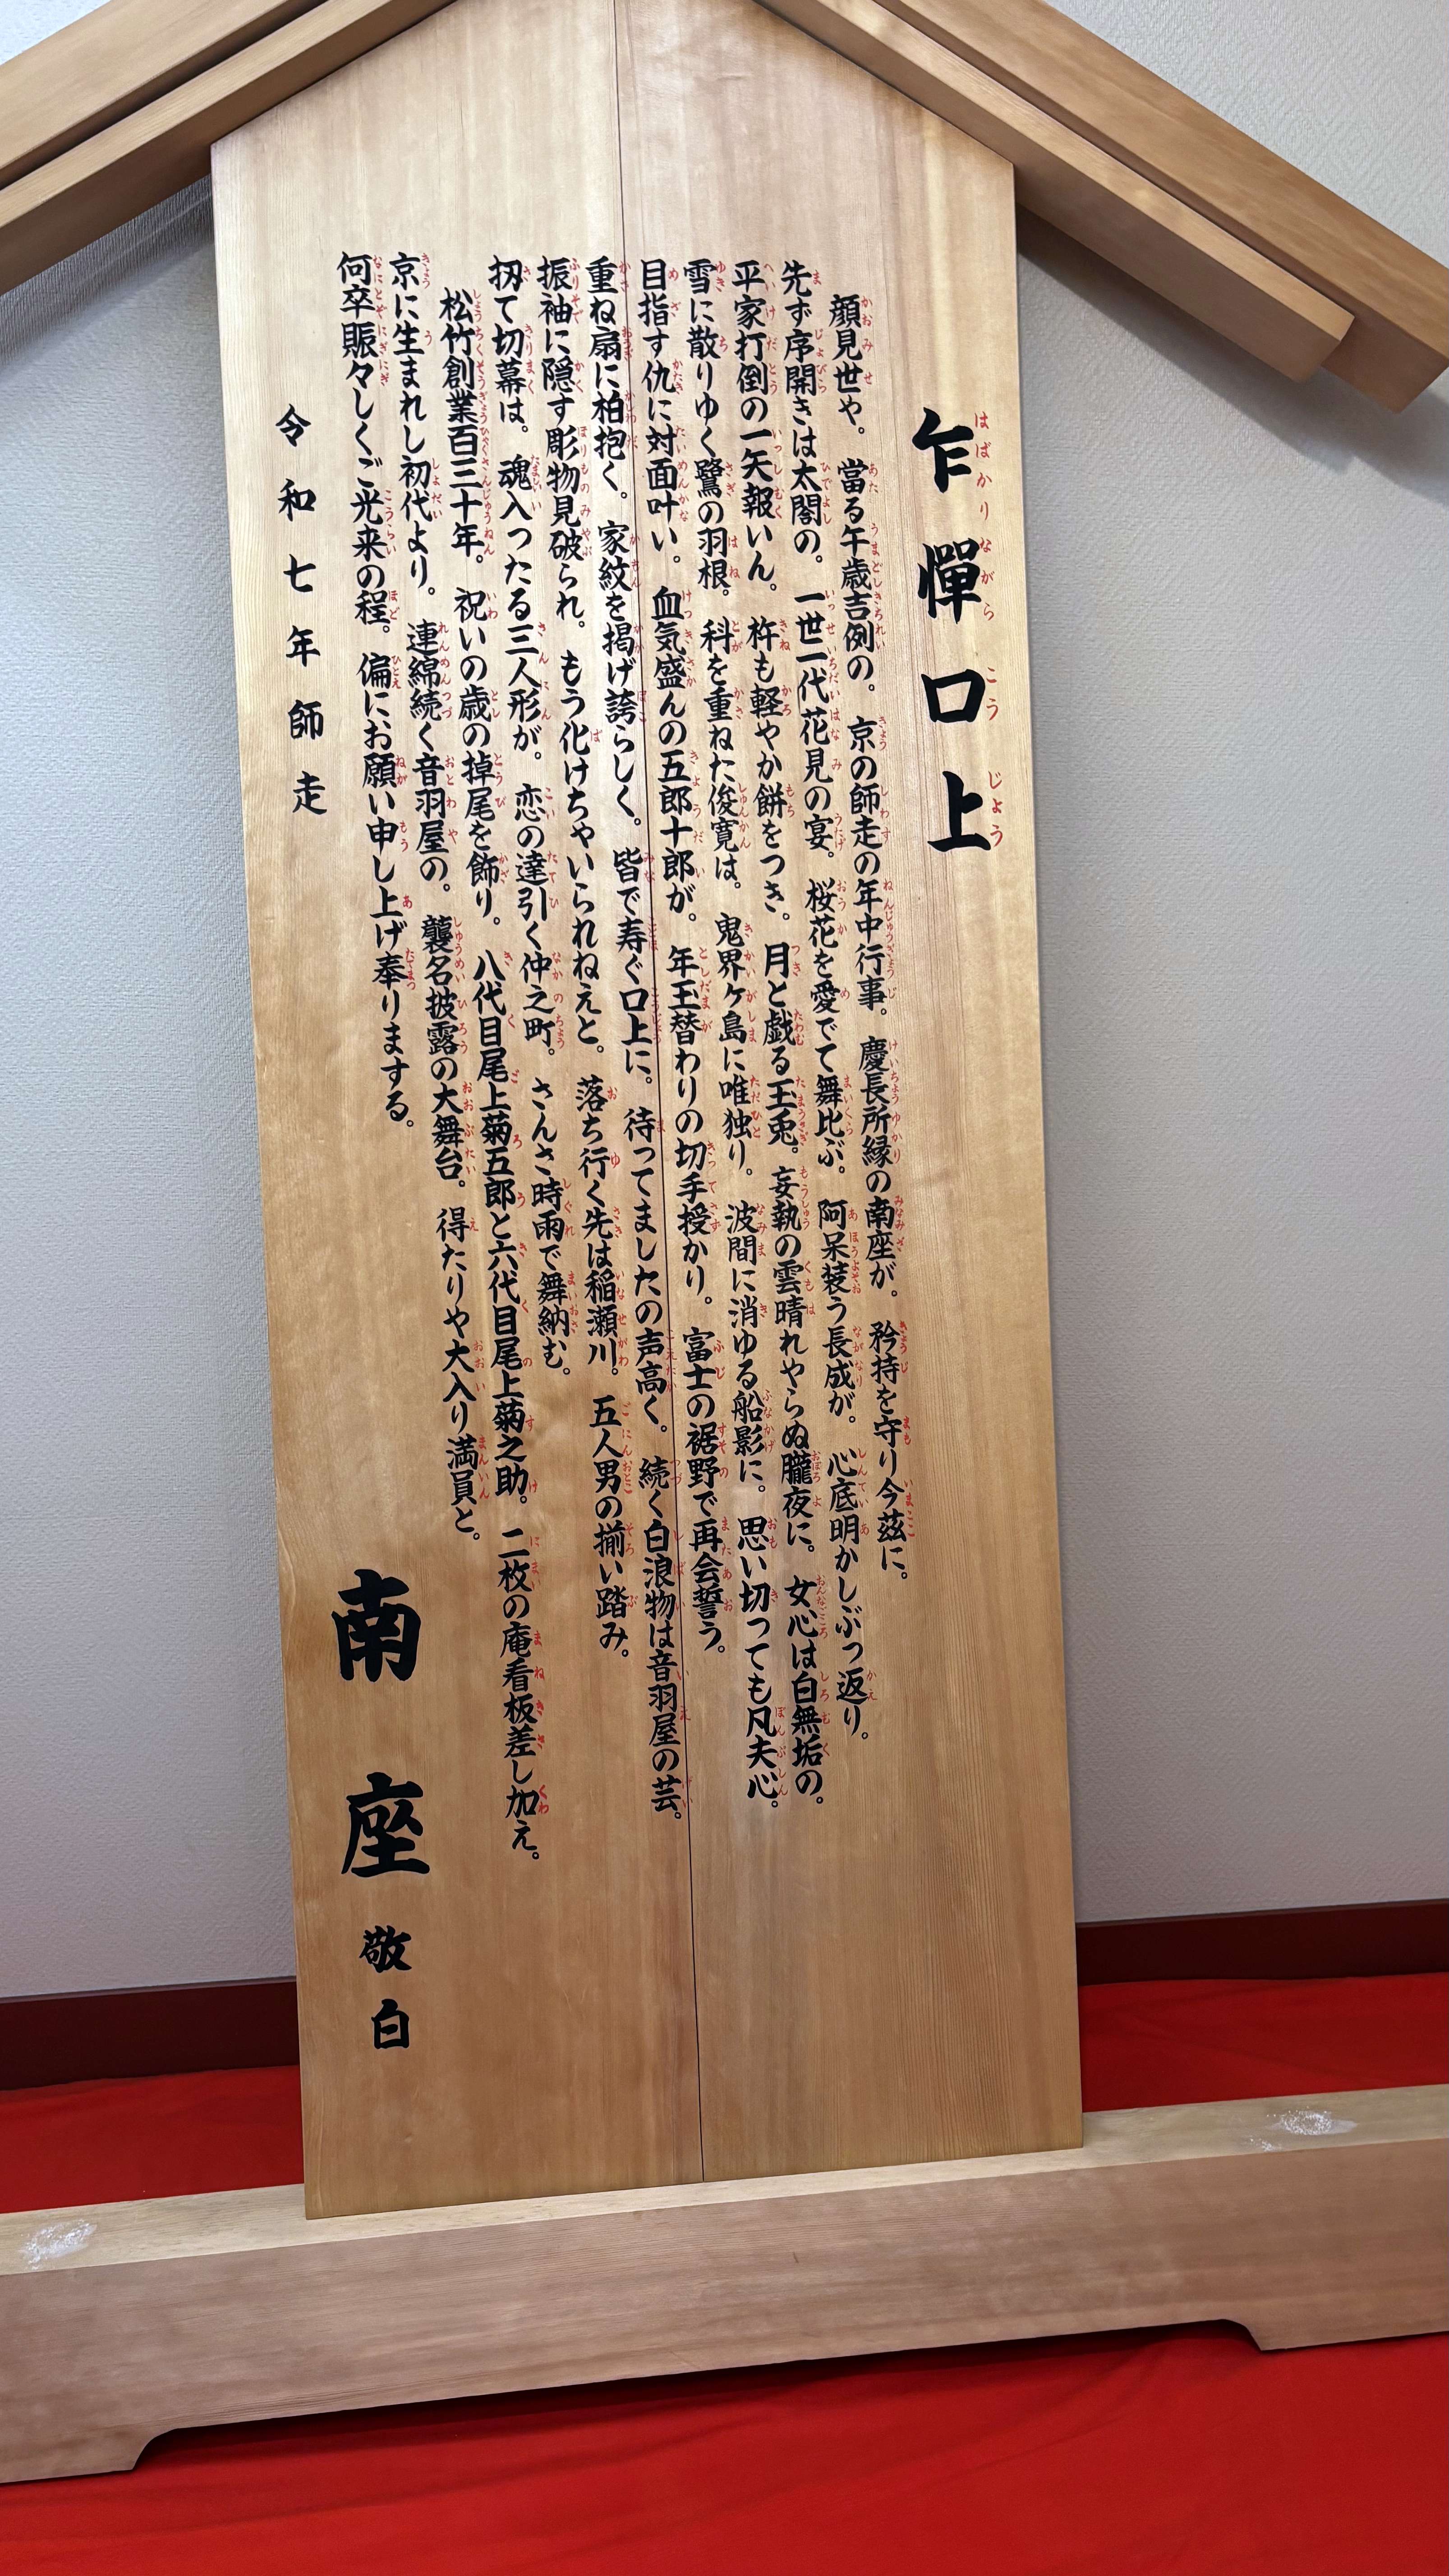 乍憚口上
顔見世や。當る午歳吉例の。京の師走の年中行事。慶長所縁の南座が。矜持を守り今茲に。
先ず序開きは太閤の。一世一代花見の宴。桜花を愛でて舞比ぶ。阿呆装う長成が。心底明かしぶっ返り。
平家打倒の一矢報いん。杵も軽やか餅をつき。月と戯る玉兎。妄執の雲晴れやらぬ朧夜に。女心は白無垢の。
雪に散りゆく鷺の羽根。科を重ねた俊寛は。鬼界ヶ島に唯独り。波間に消ゆる船影に。思い切っても凡夫心。
目指す仇に対面叶い。血気盛んの五郎十郎が。年玉替わりの切手授かり。富士の裾野で再会誓う。
重ね扇に柏抱く。家紋を掲げ誇らしく。皆で寿ぐ口上に。待ってましたの声高く。続く白浪物は音羽屋の芸。
振袖に隠す彫物見破られ。もう化けちゃいられねえと。落ち行く先は稲瀬川。五人男の揃い踏み。
扨て切幕は。魂入つたる三人形が。恋の達引く仲之町。さんさ時雨で舞納む。
松竹創業百三十年。祝いの歳の掉尾を飾り。八代目尾上菊五郎と六代目尾上菊之助。二枚の庵看板差し加え。
京に生まれし初代より。連綿続く音羽屋の。襲名披露の大舞台。得たりや大入り満員と。
何卒賑々しくご光来の程。偏にお願い申し上げ奉りまする。
令和七年師走
南座敬白